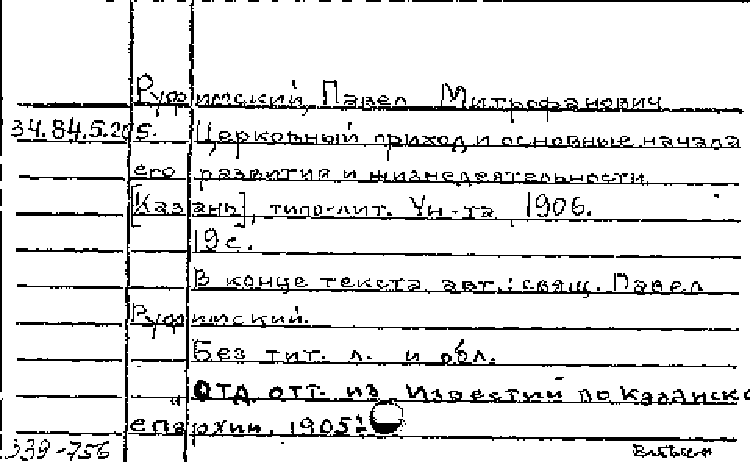 Руфимский, Павел Митрофанович
34.84.5.205. Церковный приход и основные начала
его развития и жизнедеятельности
[Казань], типо-лит. Ун-та, 1906.
19 с.
В конце текста авт.: свящ. Павел
Руфимский.
Без тит. л. и обл.
Отд. отт. из "Известий по Казанско
епархии, 1905
339-756